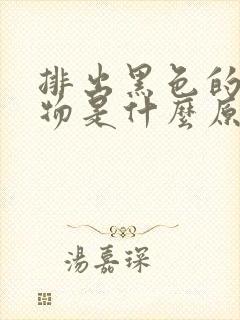 排出黑色的
物是什麼原
湯嘉琛